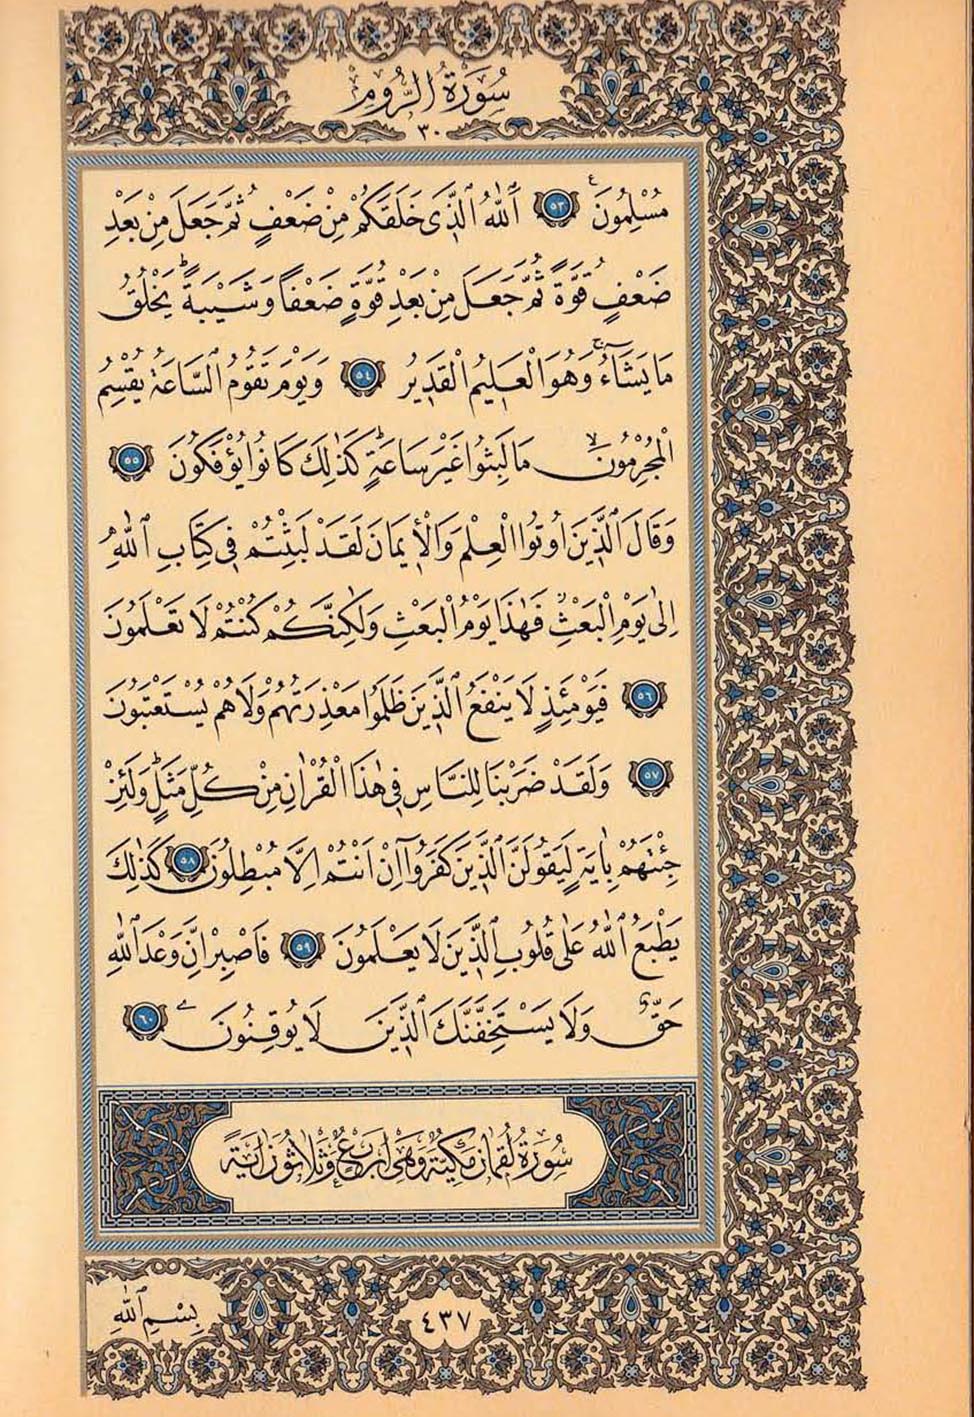 سُورَةُ الرُّومِ
٣٠
مُسْلِمُونَ ۟ ٥٣ اَللّٰهُ الَّذ۪ي خَلَقَكُمْ مِنْ ضَعْفٍ ثُمَّ جَعَلَ مِنْ بَعْدِ
ضَعْفٍ قُوَّةً ثُمَّ جَعَلَ مِنْ بَعْدِ قُوَّةٍ ضَعْفاً وَشَيْبَةًۜ يَخْلُقُ
مَا يَشَٓاءُۚ وَهُوَ الْعَل۪يمُ الْقَد۪يرُ ٥٤ وَيَوْمَ تَقُومُ السَّاعَةُ يُقْسِمُ
الْمُجْرِمُونَۙ مَا لَبِثُوا غَيْرَ سَاعَةٍۜ كَذٰلِكَ كَانُوا يُؤْفَكُونَ ٥٥
وَقَالَ الَّذ۪ينَ اُو۫تُوا الْعِلْمَ وَالْا۪يمَانَ لَقَدْ لَبِثْتُمْ ف۪ي كِتَابِ اللّٰهِ
اِلٰى يَوْمِ الْبَعْثِۘ فَهٰذَا يَوْمُ الْبَعْثِ وَلٰكِنَّكُمْ كُنْتُمْ لَا تَعْلَمُونَ
٥٦ فَيَوْمَئِذٍ لَا يَنْفَعُ الَّذ۪ينَ ظَلَمُوا مَعْذِرَتُهُمْ وَلَا هُمْ يُسْتَعْتَبُونَ
٥٧ وَلَقَدْ ضَرَبْنَا لِلنَّاسِ ف۪ي هٰذَا الْقُرْاٰنِ مِنْ كُلِّ مَثَلٍۜ وَلَئِنْ
جِئْتَهُمْ بِاٰيَةٍ لَيَقُولَنَّ الَّذ۪ينَ كَفَرُٓوا اِنْ اَنْتُمْ اِلَّا مُبْطِلُونَ ٥٨ كَذٰلِكَ
يَطْبَعُ اللّٰهُ عَلٰى قُلُوبِ الَّذ۪ينَ لَا يَعْلَمُونَ ٥٩ فَاصْبِرْ اِنَّ وَعْدَ اللّٰهِ
حَقٌّ وَلَا يَسْتَخِفَّنَّكَ الَّذ۪ينَ لَا يُوقِنُونَ ٦٠
سُورَةُ لُقْمَانَ مَكِّيَّةٌ وَهِيَ اَرْبَعٌ وَثَلَاثُونَ اٰيَةً
٤٣٧
بِسْمِ اللّٰهِ